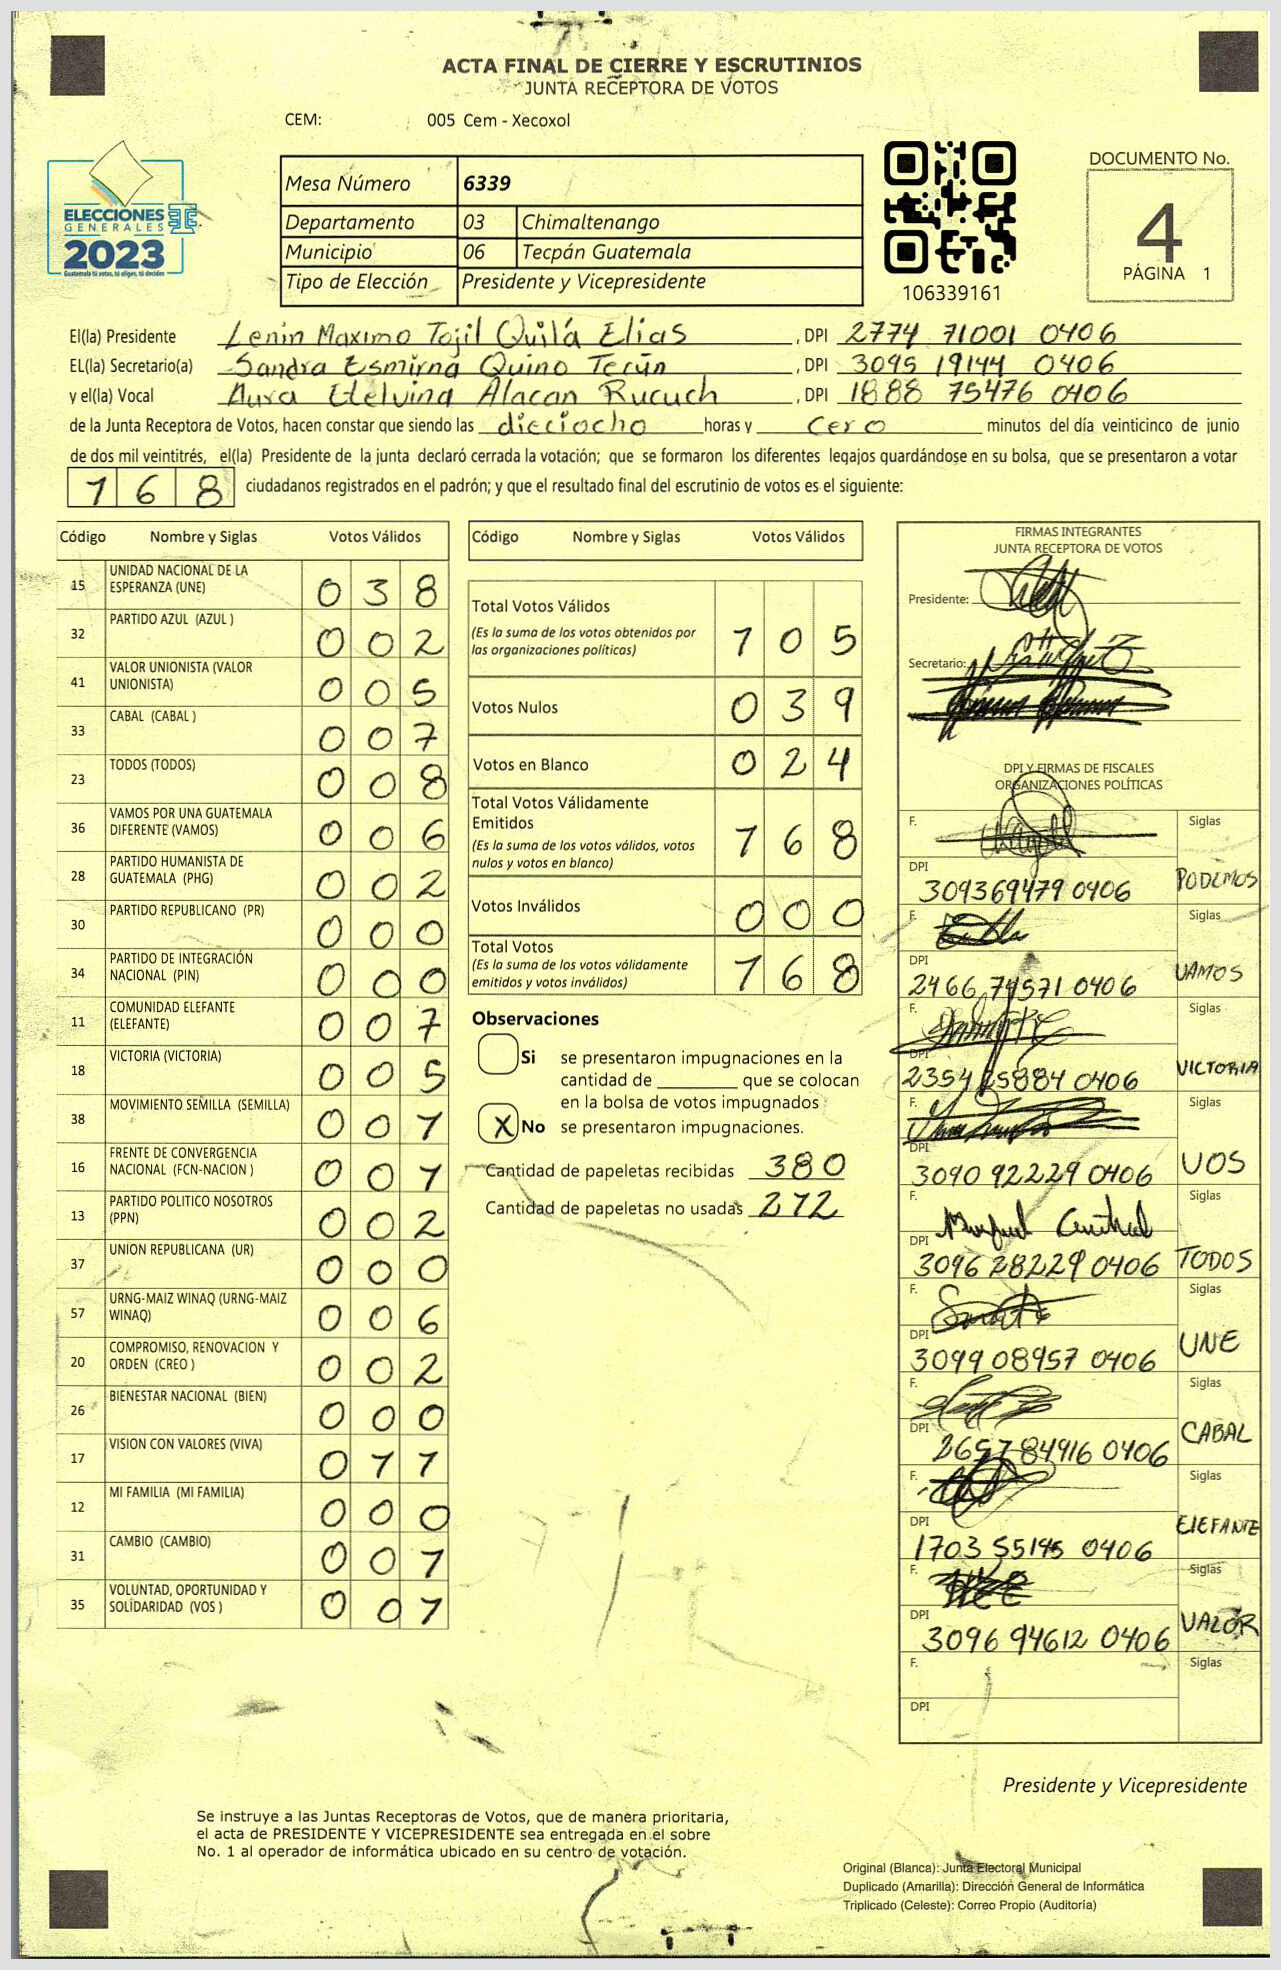 ACTA FINAL DE CIERRE Y ESCRUTINIOS
JUNTA RECEPTORA DE VOTOS
CEM: 005 Cem - Xecoxol
ELECCIONES
GENERALES
2023
Guatemala tú votas, tú eliges, tú decides
Mesa Número 6339
Departamento 03 Chimaltenango
Municipio 06 Tecpán Guatemala
Tipo de Elección Presidente y Vicepresidente
106339161
DOCUMENTO No.
4
PÁGINA 1
El(la) Presidente Lenin Maximo Tojil Quilá Elias, DPI 2774 71001 0406
EL(la) Secretario(a) Sandra Esmirna Quino Tecún, DPI 3095 19144 0406
y el(la) Vocal Aura Etelvina Alacan Rucuch, DPI 1888 75476 0406
de la Junta Receptora de Votos, hacen constar que siendo las dieciocho horas y cero minutos del día veinticinco de junio
de dos mil veintitrés, el(la) Presidente de la junta declaró cerrada la votación; que se formaron los diferentes legajos guardándose en su bolsa, que se presentaron a votar
168 ciudadanos registrados en el padrón; y que el resultado final del escrutinio de votos es el siguiente:
Código Nombre y Siglas Votos Válidos
15 UNIDAD NACIONAL DE LA ESPERANZA (UNE) 0 3 8
32 PARTIDO AZUL (AZUL ) 0 0 2
41 VALOR UNIONISTA (VALOR UNIONISTA) 0 0 5
33 CABAL (CABAL ) 0 0 7
23 TODOS (TODOS) 0 0 8
36 VAMOS POR UNA GUATEMALA DIFERENTE (VAMOS) 0 0 6
28 PARTIDO HUMANISTA DE GUATEMALA (PHG) 0 0 2
30 PARTIDO REPUBLICANO (PR) 0 0 0
34 PARTIDO DE INTEGRACIÓN NACIONAL (PIN) 0 0 0
11 COMUNIDAD ELEFANTE (ELEFANTE) 0 0 7
18 VICTORIA (VICTORIA) 0 0 5
38 MOVIMIENTO SEMILLA (SEMILLA) 0 0 1
16 FRENTE DE CONVERGENCIA NACIONAL (FCN-NACION ) 0 0 1
13 PARTIDO POLITICO NOSOTROS (PPN) 0 0 2
37 UNION REPUBLICANA (UR) 0 0 0
57 URNG-MAIZ WINAQ (URNG-MAIZ WINAQ) 0 0 6
20 COMPROMISO, RENOVACION Y ORDEN (CREO ) 0 0 2
26 BIENESTAR NACIONAL (BIEN) 0 0 0
17 VISION CON VALORES (VIVA) 0 1 1
12 MI FAMILIA (MI FAMILIA) 0 0 0
31 CAMBIO (CAMBIO) 0 0 1
35 VOLUNTAD, OPORTUNIDAD Y SOLIDARIDAD (VOS ) 0 0 1
Código Nombre y Siglas Votos Válidos
Total Votos Válidos
(Es la suma de los votos obtenidos por
las organizaciones políticas) 1 0 5
Votos Nulos 0 3 9
Votos en Blanco 0 2 4
Total Votos Válidamente
Emitidos
(Es la suma de los votos válidos, votos
nulos y votos en blanco) 1 6 8
Votos Inválidos 0 0 0
Total Votos
(Es la suma de los votos válidamente
emitidos y votos inválidos) 1 6 8
Observaciones
Si se presentaron impugnaciones en la
cantidad de ________ que se colocan
en la bolsa de votos impugnados
X No se presentaron impugnaciones.
Cantidad de papeletas recibidas 380
Cantidad de papeletas no usadas 212
FIRMAS INTEGRANTES
JUNTA RECEPTORA DE VOTOS
Presidente:
Secretario:
DPI Y FIRMAS DE FISCALES
ORGANIZACIONES POLÍTICAS
F. Siglas
DPI 309369479 0406 PODEMOS
F. Siglas
DPI 2466 74571 0406 VAMOS
F. Siglas
DPI 2354 25884 0406 VICTORIA
F. Siglas
DPI 3090 92229 0406 VOS
F. Siglas
DPI 3096 28229 0406 TODOS
F. Siglas
DPI 3099 08957 0406 UNE
F. Siglas
DPI 2657 84916 0406 CABAL
F. Siglas
DPI 1703 55145 0406 ElEFANTE
F. Siglas
DPI 3096 94612 0406 VALOR
F. Siglas
DPI
Presidente y Vicepresidente
Se instruye a las Juntas Receptoras de Votos, que de manera prioritaria,
el acta de PRESIDENTE Y VICEPRESIDENTE sea entregada en el sobre
No. 1 al operador de informática ubicado en su centro de votación.
Original (Blanca): Junta Electoral Municipal
Duplicado (Amarilla): Dirección General de Informática
Triplicado (Celeste): Correo Propio (Auditoría)